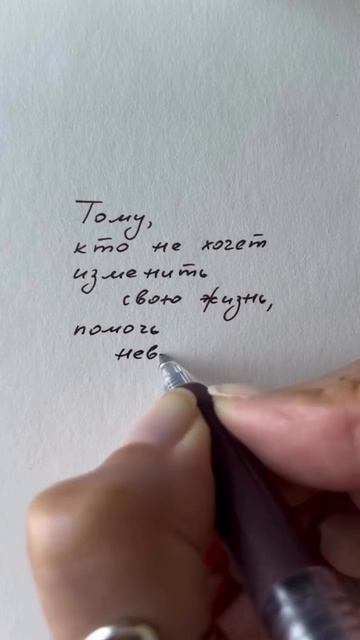 Тому,
кто не хочет
изменить
свою жизнь,
помочь
нев